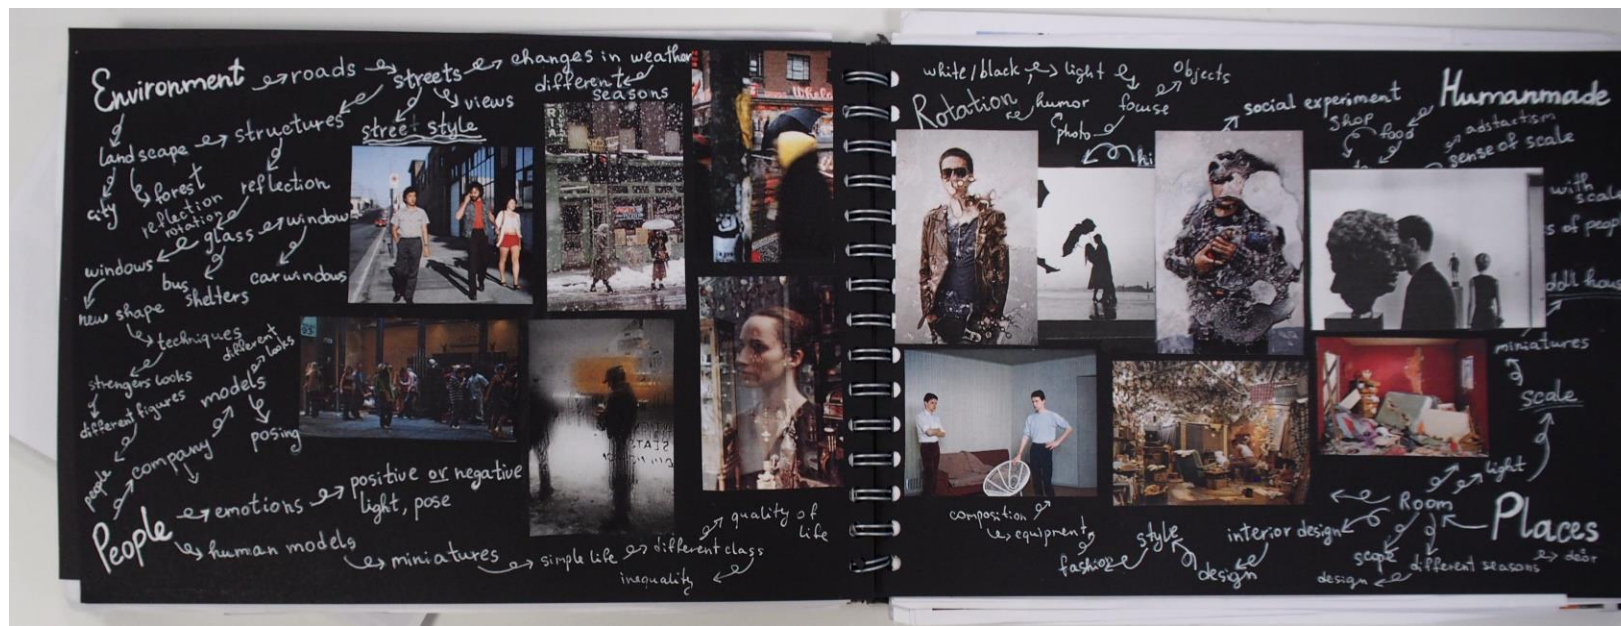 Environment
roads
streets
changes in weather
different
seasons
views
street style
structures
landscape
city
forest
reflection
reflection
rotation
glass
window
windows
bus
shelters
car windows
new shape
techniques
different
looks
strengers looks
different figures
models
people
company
posing
People
emotions
positive or negative
light, pose
human models
miniatures
simple life
different class
quality of
life
inequality
white/black
light
Objects
Rotation
humor
focuse
photo
hi
social experiment
Humanmade
shop
food
adstartism
sense of scale
with
scale
s of peop
doll hou
miniatures
scale
light
Room
Places
composition
equipment
fashion
style
design
interior design
scope
different seasons
design